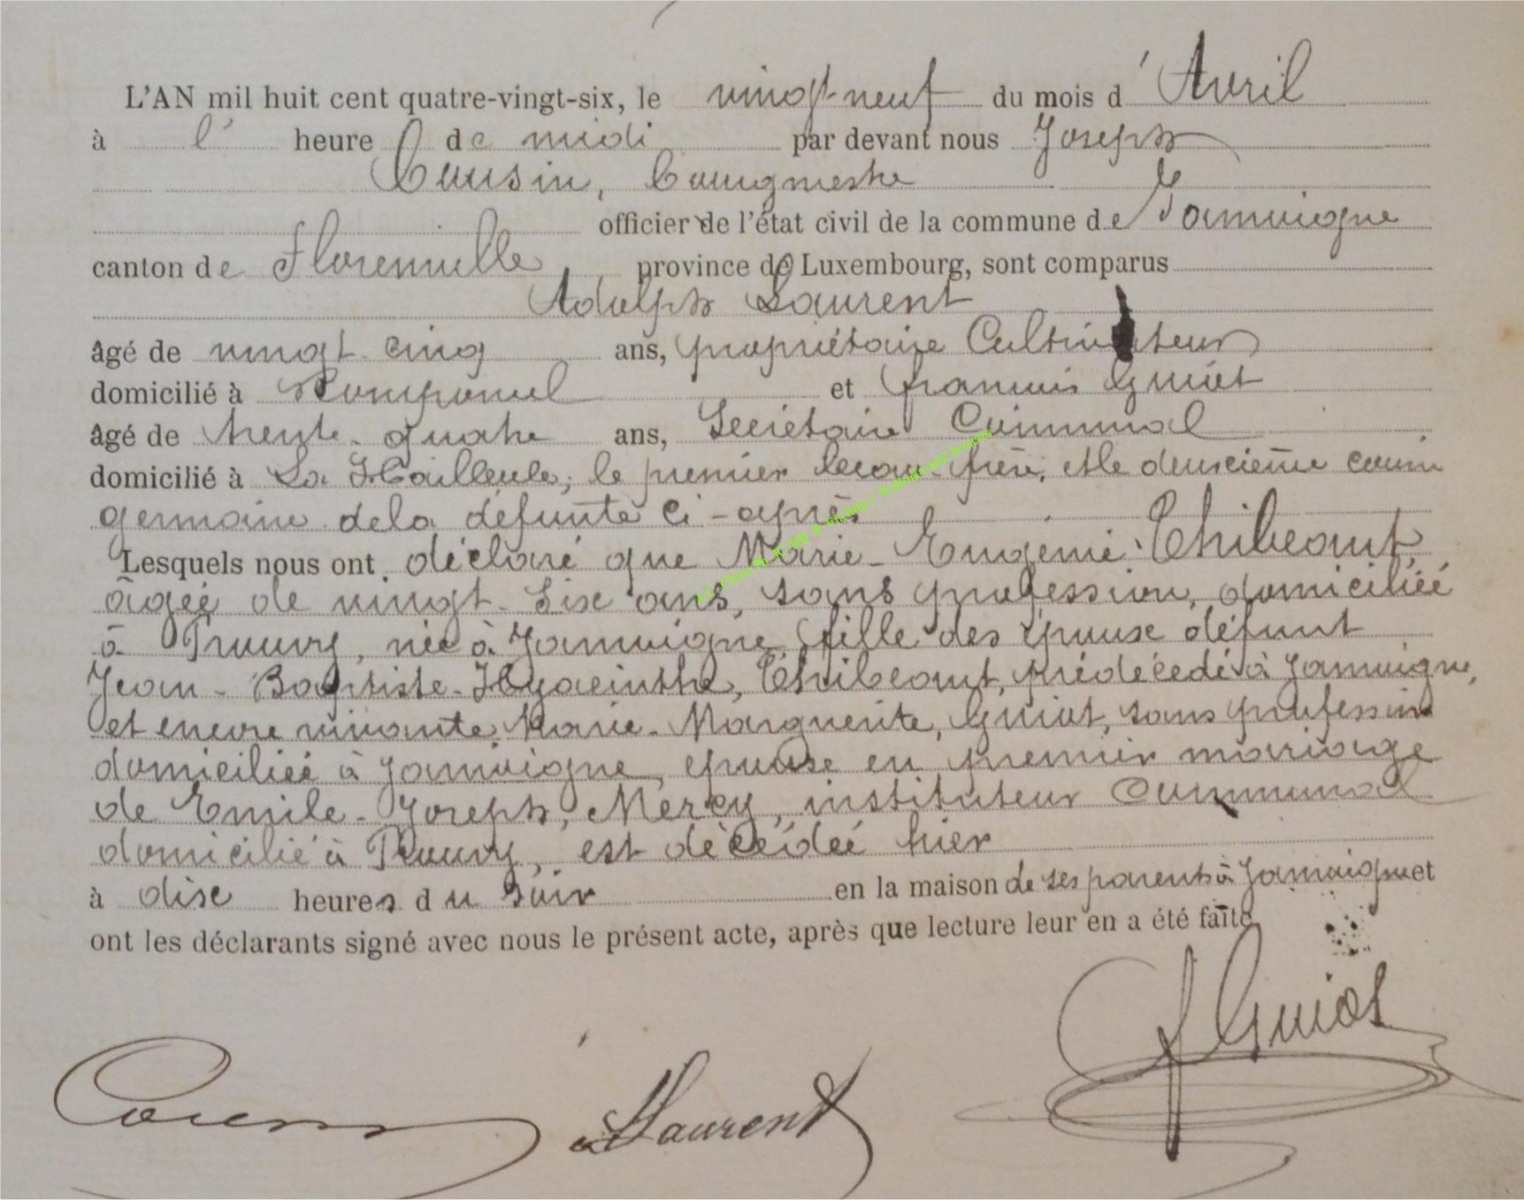 L'AN mil huit cent quatre-vingt-six, le vingt-neuf du mois d'Avril
à l' heure de midi par devant nous Joseph
Cousin, bourgmestre
officier de l'état civil de la commune de Jamoigne
canton de Florenville province de Luxembourg, sont comparus
Adolph Laurent
âgé de vingt-cinq ans, propriétaire Cultivateur
domicilié à Romponcel et francois Guiot
âgé de trente-quatre ans, Secrétaire Communal
domicilié à La Hailleule, le premier beau-frère, et le deuxième cousin
germain de la défunte ci-après
Lesquels nous ont déclaré que Marie-Eugénie Thibeaut,
âgée de vingt-six ans, sans profession, domiciliée
à Prouvy, née à Jamoigne, fille des époux défunt
Jean-Baptiste-Hyacinthe, Thibeaut, prédécédé à Jamoigne,
et encore vivante, Marie-Marguerite, Guiot, sans profession
domiciliée à Jamoigne, épouse en premier mariage
de Emile-Joseph, Mercy, instituteur Communal
domicilié à Prouvy, est décédée hier
à dix heures du soir en la maison de ses parents à Jamoigne et
ont les déclarants signé avec nous le présent acte, après que lecture leur en a été faite
F Guiot
Cousin ALaurent